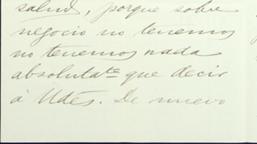 salud, porque sobre
negocio no tenemos
no tenemos nada
absolutate que decir
á Udes. De nuevo